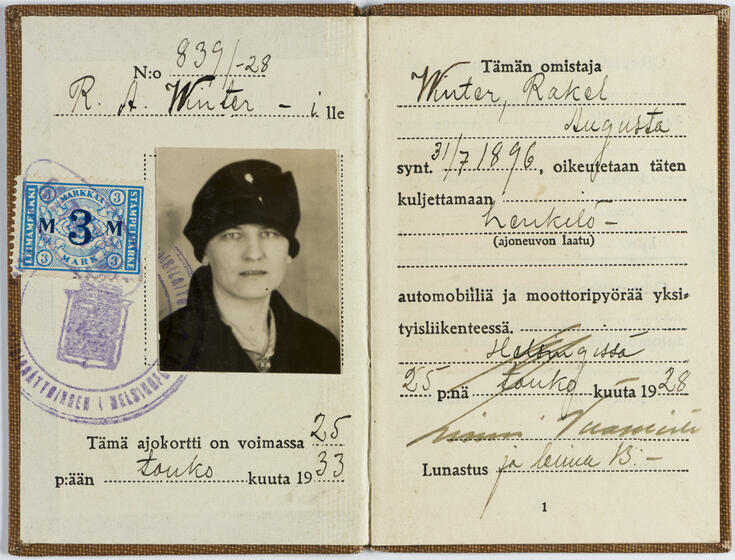 N:o 839/-28
R. A. Winter - i lle
LEIMAMERKKI
3 MARKKAA 3
M. 3 M
3 MARK 3
STÄMPELMÄRKE
HELSINGFORS
Tämä ajokortti on voimassa 25
p:ään touko kuuta 1933
Tämän omistaja
Winter, Rakel
Augusta
synt. 31/7 1896, oikeutetaan täten
kuljettamaan
henkilö-
(ajoneuvon laatu)
automobiiliä ja moottoripyörää yksi-
tyisliikenteessä.
Helsingissä
25 p:nä touko kuuta 1928
Lunastus ja leima 13:-
1